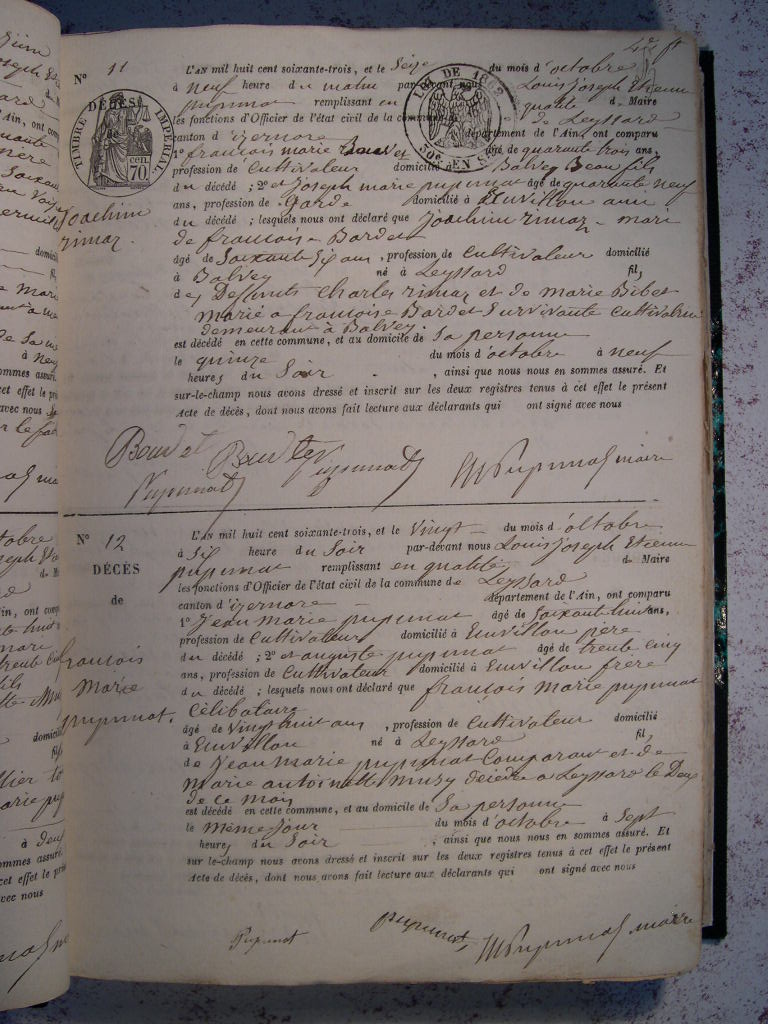 N° 11
L'AN mil huit cent soixante-trois, et le Seize du mois d'octobre
à neuf heure du matin par-devant nous Louis joseph Etienne
pupunat remplissant en qualité de Maire
les fonctions d'Officier de l'état civil de la commune de Leyssard
canton d'izernore département de l'Ain, ont comparu
1° francois marie Boudet âgé de quarante trois ans,
profession de Cultivateur domicilié à Balvey Beau fils
du décédé ; 2° et joseph marie pupunat âgé de quarante neuf
ans, profession de Garde domicilié à Euvillon ami
du décédé ; lesquels nous ont déclaré que joachim rimaz mari
de francoise Bardet
âgé de Soixante Six ans, profession de Cultivateur domicilié
à Balvey né à Leyssard fils
des Defunts Charles rimaz et de marie Bibet
marié a francoise Bardet Survivante Cultivatrice
demeurant à Balvey.
est décédé en cette commune, et au domicile de Sa personne
le quinze du mois d'octobre à neuf
heures du Soir, ainsi que nous nous en sommes assuré. Et
sur-le-champ nous avons dressé et inscrit sur les deux registres tenus à cet effet le présent
Acte de décès, dont nous avons fait lecture aux déclarants qui ont signé avec nous
DÉCÈS
de
TIMBRE IMPÉRIAL
70 CEN.
LOI DE 1862
50c. EN SUS
Joachim
rimaz
Boudet
Pupunat
Pupunat maire
N° 12
DÉCÈS
de
francois
Marie
pupunat.
L'AN mil huit cent soixante-trois, et le Vingt du mois d'octobre
à Six heure du Soir par-devant nous Louis joseph Etienne
pupunat remplissant en qualité de Maire
les fonctions d'Officier de l'état civil de la commune de Leyssard
canton d'izernore département de l'Ain, ont comparu
1° Jean marie pupunat âgé de Soixante huit ans,
profession de Cultivateur domicilié à Euvillon père
du décédé ; 2° et auguste pupunat âgé de trente cinq
ans, profession de Cultivateur domicilié à Euvillon frère
du décédé ; lesquels nous ont déclaré que francois Marie pupunat
Célibataire
âgé de Vingt huit ans, profession de Cultivateur domicilié
à Euvillon né à Leyssard fils
de Jean marie pupunat Comparant et de
marie antoinette Muzy décédée a Leyssard le Deux
de ce mois
est décédé en cette commune, et au domicile de Sa personne
le Même jour du mois d'octobre à Sept
heures du Soir, ainsi que nous nous en sommes assuré. Et
sur le-champ nous avons dressé et inscrit sur les deux registres tenus à cet effet le présent
Acte de décès, dont nous avons fait lecture aux déclarants qui ont signé avec nous
Pupunat pupunat Pupunat maire